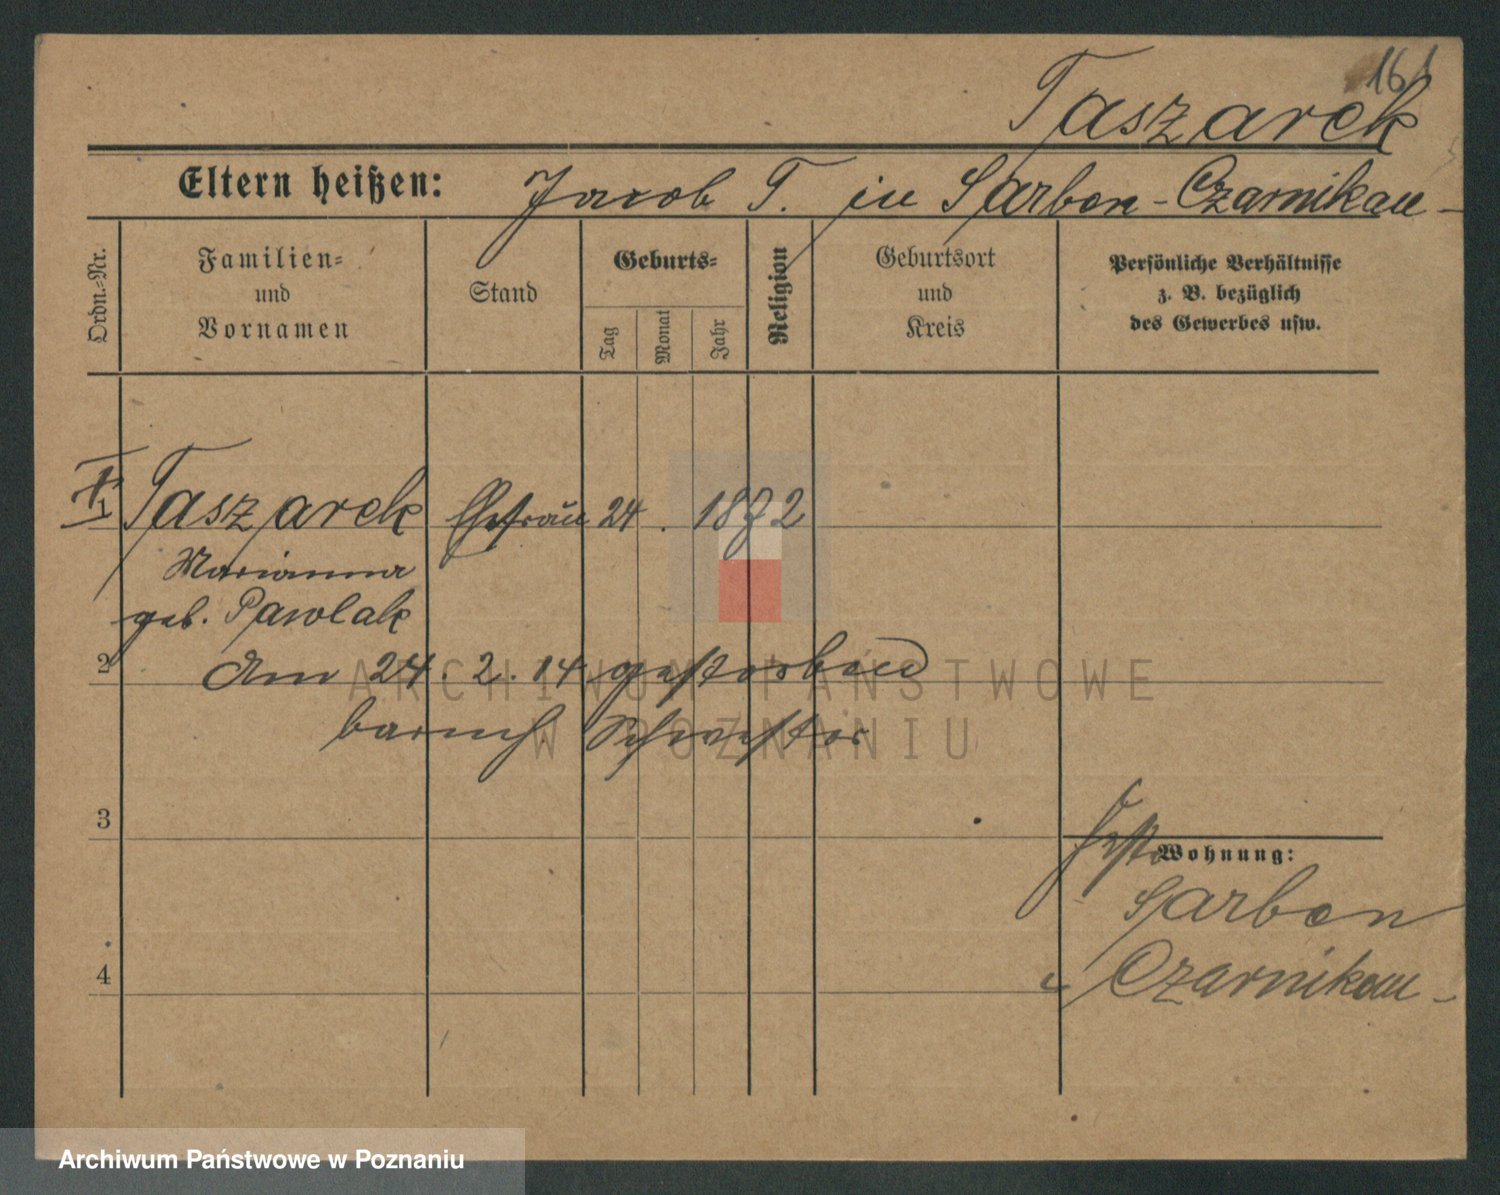 161
Taszarek
Eltern heißen: Jacob T. in Sarben-Czarnikau-
Ordn.-Nr.
Familien-
und
Vornamen
Stand
Geburts-
Tag
Monat
Jahr
Religion
Geburtsort
und
Kreis
Persönliche Verhältnisse
z. B. bezüglich
des Gewerbes usw.
1 Taszarek Ehefrau 24. 1872
Marianna
geb. Pawlak
2 Am 24. 2. 14 gestorben
barmh Schwester
3
Wohnung:
Sarben
4
Czarnikau-
ARCHIWUM PAŃSTWOWE
W POZNANIU
Archiwum Państwowe w Poznaniu